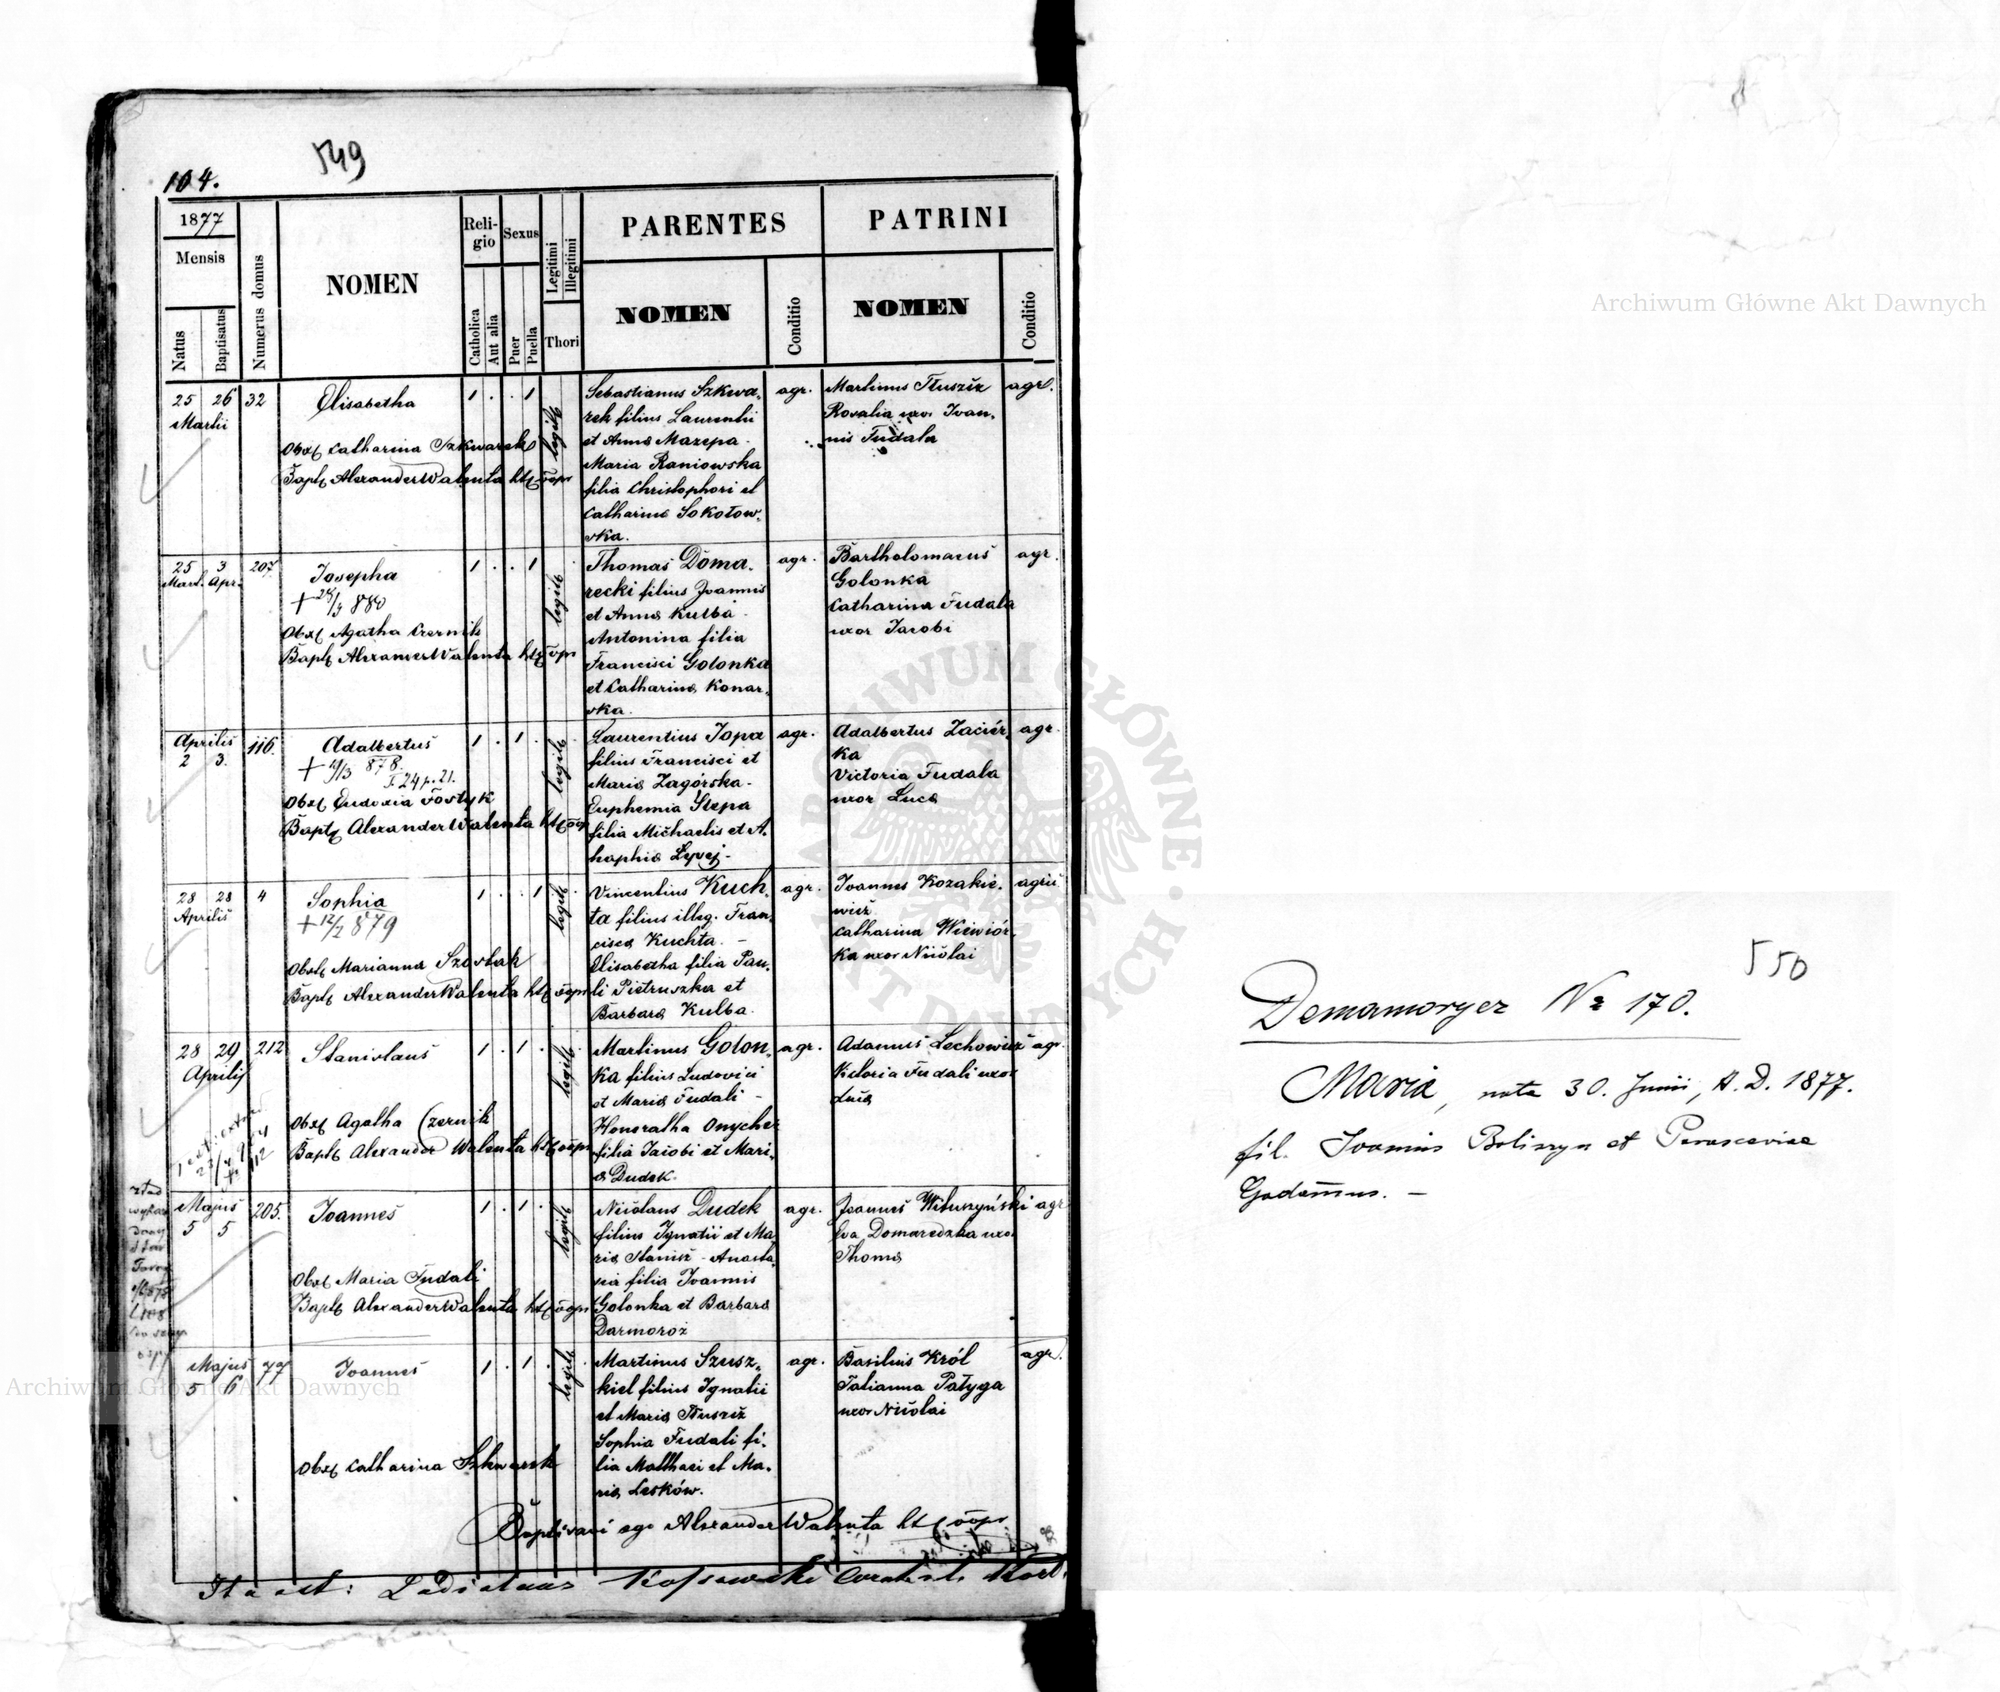 549
104.
1877
Mensis
Natus
Baptisatus
Numerus domus
NOMEN
Religio
Catholica
Aut alia
Sexus
Puer
Puella
Legitimi
Illegitimi
Thori
PARENTES
NOMEN
Conditio
PATRINI
NOMEN
Conditio
25 26 32
Martii
Elisabetha
1 . . 1
legit
Obst Catharina Szkwarek
Bapt Alexander Walenta
Sebastianus Szkwa-
rek filius Laurentii
et Anna Mazepa.
Maria Raniowska
filia Christophori et
Catharina Sokołow-
ska.
agr.
Martinus Tłuszcz
Rosalia uxor Ioan-
nis Fudala
agr.
25 3 207
Mart. Apr.
Josepha
1 . . 1
legit
Obst Agatha Czernik
Bapt Alexander Walenta
Thomas Doma-
recki filius Joannis
et Anna Kulba.
Antonina filia
Francisci Golonka
et Catharina Konar-
ska.
agr.
Bartholomaeus
Golonka
Catharina Fudala
uxor Jacobi
agr.
Aprilis 116.
2 3.
Adalbertus
T. 24 p. 21.
1 . 1 .
legit
Obst Eudoxia Fostyk
Bapt Alexander Walenta
Laurentius Jopa
filius Francisci et
Maria Zagórska.
Euphemia Slepa
filia Michaelis et A-
haphia Lyvej-
agr.
Adalbertus Zaciér-
ka
Victoria Fudala
uxor Luca
agr.
28 28 4
Aprilis
Sophia
+ 12/2 879
1 . . 1
legit
Obst Marianna Szostak
Bapt Alexander Walenta
Vincentius Kuch-
ta filius illeg. Fran-
cisca Kuchta. -
Elisabetha filia Pau-
li Pietruszka et
Barbara Kulba.
agr.
Ioannes Kozakie-
wicz
Catharina Wiewiór-
ka uxor Nicolai
28 29 212
Aprilis
Stanislaus
1 . 1 .
legit
Obst Agatha Czernik
Bapt Alexander Walenta
Martinus Golon-
ka filius Ludovici
et Maria Fudali -
Honoratha
filia Jacobi et Mari-
a Dudek.
agr.
Adamus Lechowicz
Victoria Fudali uxor
agr.
Majus 205.
5 5
Ioannes
1 . 1 .
legit
Obst Maria Fudali
Bapt Alexander Walenta
Nicolaus Dudek
filius Ignatii et Ma-
ria Stanisz - Anasta-
sia filia Ioannis
Golonka et Barbara
Darmoroz
agr.
Joannes Wituszyński
Eva Domaredzka uxor
Thoma
agr
Majus 77
5 6
Ioannes
1 . 1 .
legit
Obst Catharina Szkwarek
Martinus Szusz-
kiel filius Ignatii
et Maria Tłuszcz
Sophia Fudali fi-
lia Matthaei et Ma-
ria Lesków.
agr.
Basilius Król
Tatianna Pałyga
uxor Nicolai
agr.
Baptisavi ego Alexander Walenta
Ita est: Ladislaus
550
Demamorycz No 170.
Maria, nata 30. Junii, A. D. 1877.
fil. Joannis Boliszyn et Parasceviae
Archiwum Główne Akt Dawnych
ARCHIWUM GŁÓWNE · AKT DAWNYCH ·
Archiwum Główne Akt Dawnych